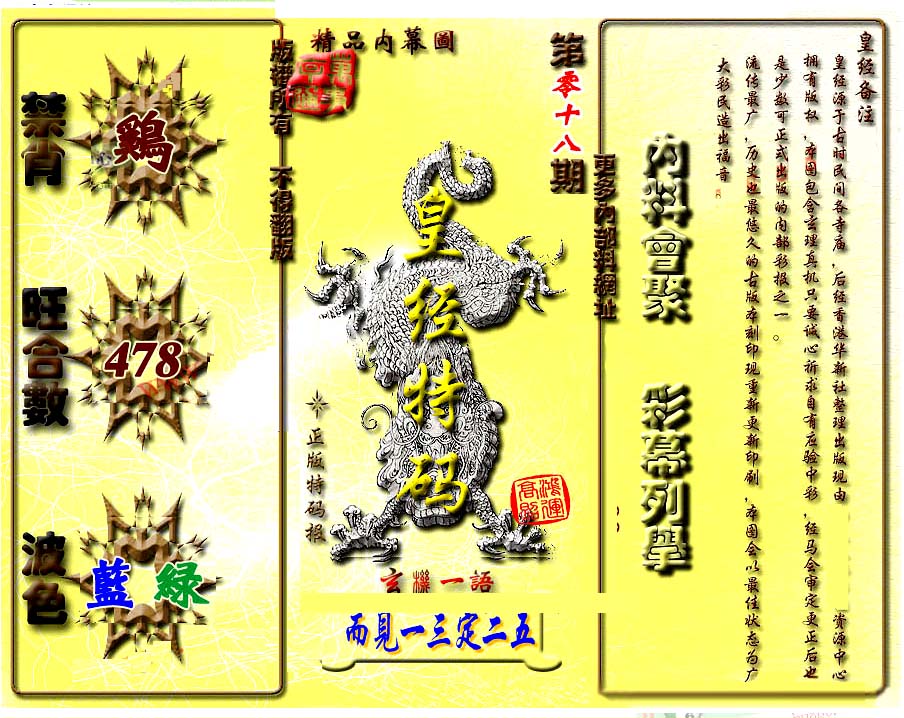 精品内幕圖
第零十八期
版權所有 不得翻版
更多內部料網址
禁肖
鷄
旺合數
478
波色
藍 綠
皇经特码
正版特码报
鴻運高照
玄機一語
而見一三定二五
內料會聚 彩幕列舉
皇经备注
皇经源于古时民间各寺庙,后经香港华新社整理出版现由 资源中心
拥有版权,本图包含玄理真机只要诚心祈求自有应验中彩,经马会审定更正后也
是少数可正式出版的内部彩报之一。
流传最广,历史也最悠久的古版本刻印现重新更新印刷,本图会以最佳状态为广
大彩民造出福音